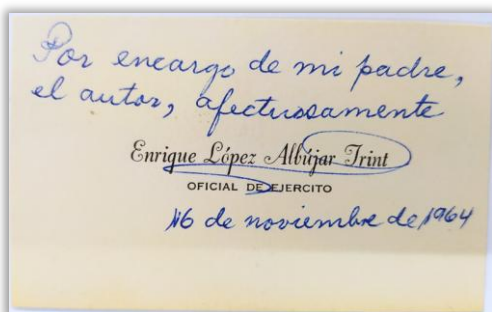 Por encargo de mi padre,
el autor, afectuosamente
Enrique López Albújar Trint
OFICIAL DE EJERCITO
16 de noviembre de 1964